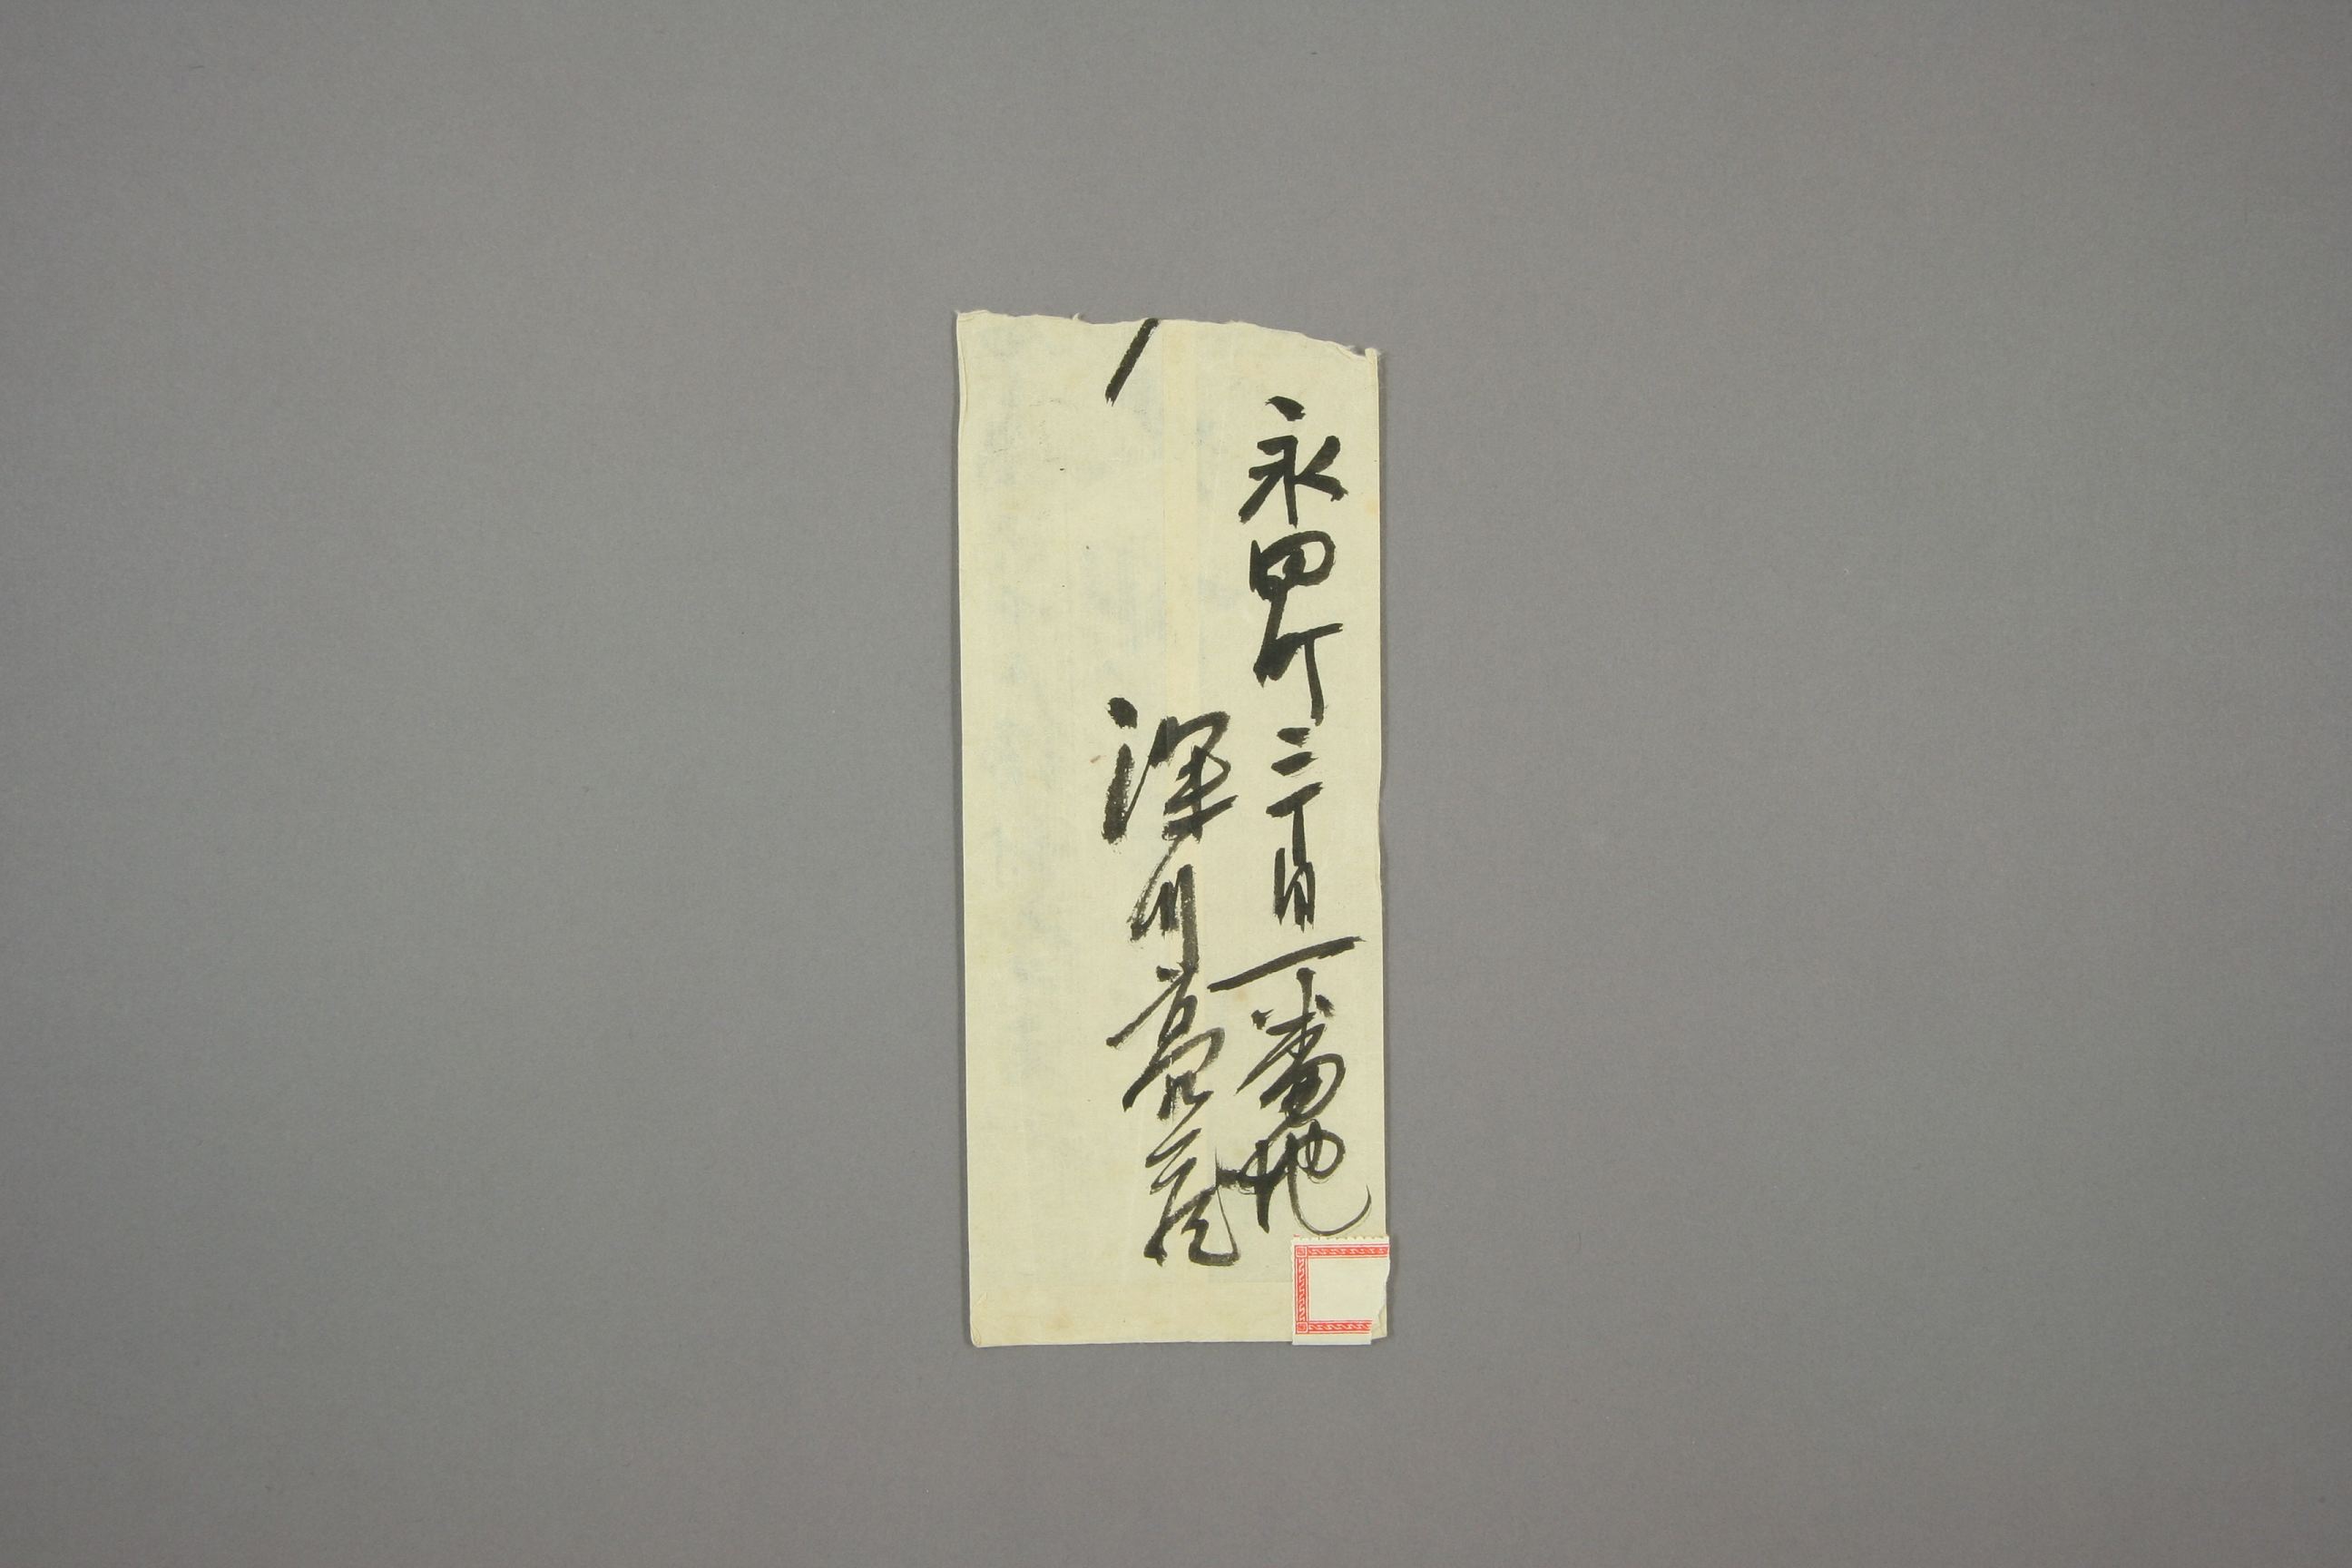 永田町二丁目一番地
深川亮蔵